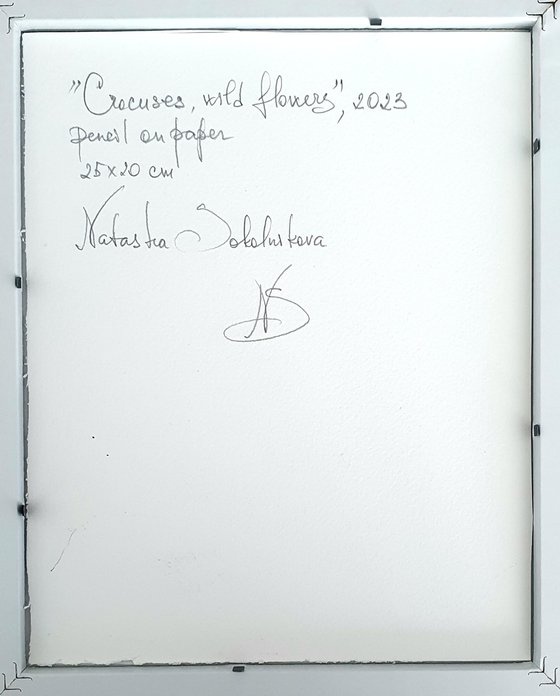 "Crocuses, wild flowers", 2023
pencil on paper
25x20 cm
Natasha Sokolnikova
NS